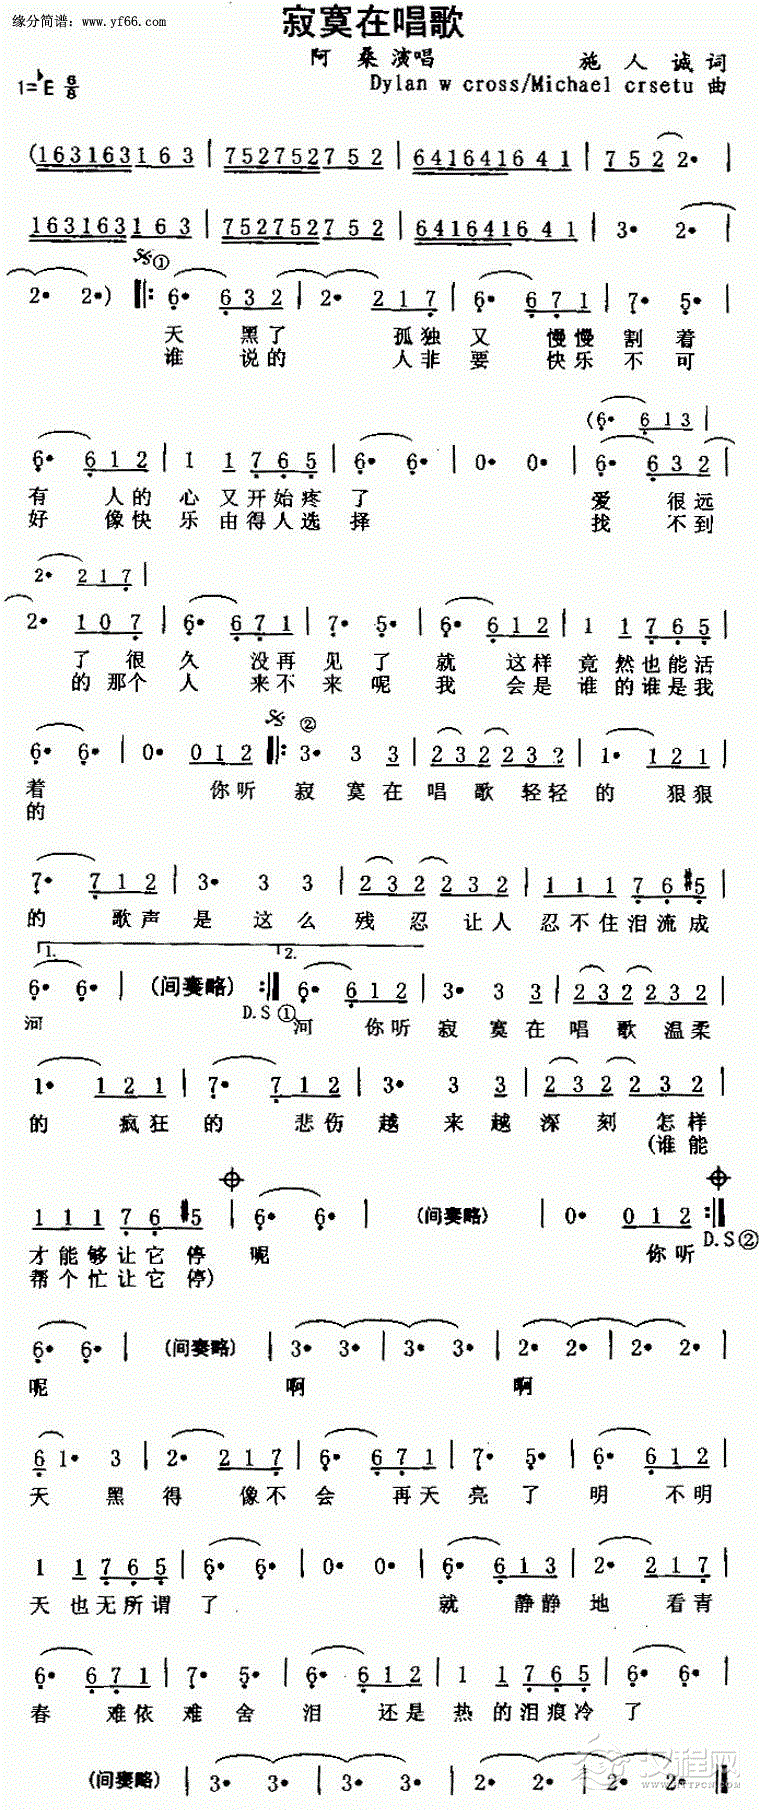 缘分简谱：www.yf66.com
寂寞在唱歌
阿 桑 演唱 施 人 诚 词
1=♭E 6/8 Dylan w cross/Michael crsetu 曲
(163163163 | 752752752 | 641641641 | 752 2• |
163163163 | 752752752 | 641641641 | 3• 2• |
𝄋①
2• 2•) ‖: 6• 632 | 2• 217 | 6• 671 | 7• 5• |
天 黑了 孤独 又 慢慢 割着
谁 说的 人非 要 快乐 不可
(6• 613 |
6• 612 | 1 1765 | 6• 6• | 0• 0• | 6• 632 |
有 人的 心 又开始疼 了 爱 很远
好 像快 乐 由得人选 择 找 不到
2• 217 |
2• 107 | 6• 671 | 7• 5• | 6• 612 | 1 1765 |
了 很 久 没再 见 了 就 这样 竟 然也能活
的 那个 人 来不 来 呢 我 会是 谁 的谁是我
𝄋②
6• 6• | 0• 012 ‖: 3• 3 3 | 232232 | 1• 121 |
着 你听 寂 寞在 唱 歌 轻轻 的 狠狠
的
7• 712 | 3• 3 3 | 232232 | 11176#5 |
的 歌声 是 这么 残 忍 让人 忍不住泪流成
1. 2.
6• 6• | (间奏略) :‖ 6• 612 | 3• 3 3 | 232232 |
D.S①
河 河 你听 寂 寞在 唱 歌 温柔
1• 121 | 7• 712 | 3• 3 3 | 232232 |
的 疯狂 的 悲伤 越 来越 深 刻 怎样
(谁能
11176#5 | 6• 6• | (间奏略) | 0• 012 :‖
D.S②
才能够让它 停 呢 你听
帮个忙让它 停)
6• 6• | (间奏略) | 3• 3• | 3• 3• | 2• 2• | 2• 2• |
呢 啊 啊
6 1• 3 | 2• 217 | 6• 671 | 7• 5• | 6• 612 |
天 黑 得 像不 会 再天 亮 了 明 不明
1 1765 | 6• 6• | 0• 0• | 6• 613 | 2• 217 |
天 也无所谓 了 就 静静 地 看青
6• 671 | 7• 5• | 6• 612 | 1 1765 | 6• 6• |
春 难依 难 舍 泪 还是 热 的泪痕冷 了
(间奏略) | 3• 3• | 3• 3• | 2• 2• | 2• 2• ‖
汉程网
WWW.HTTPCN.COM